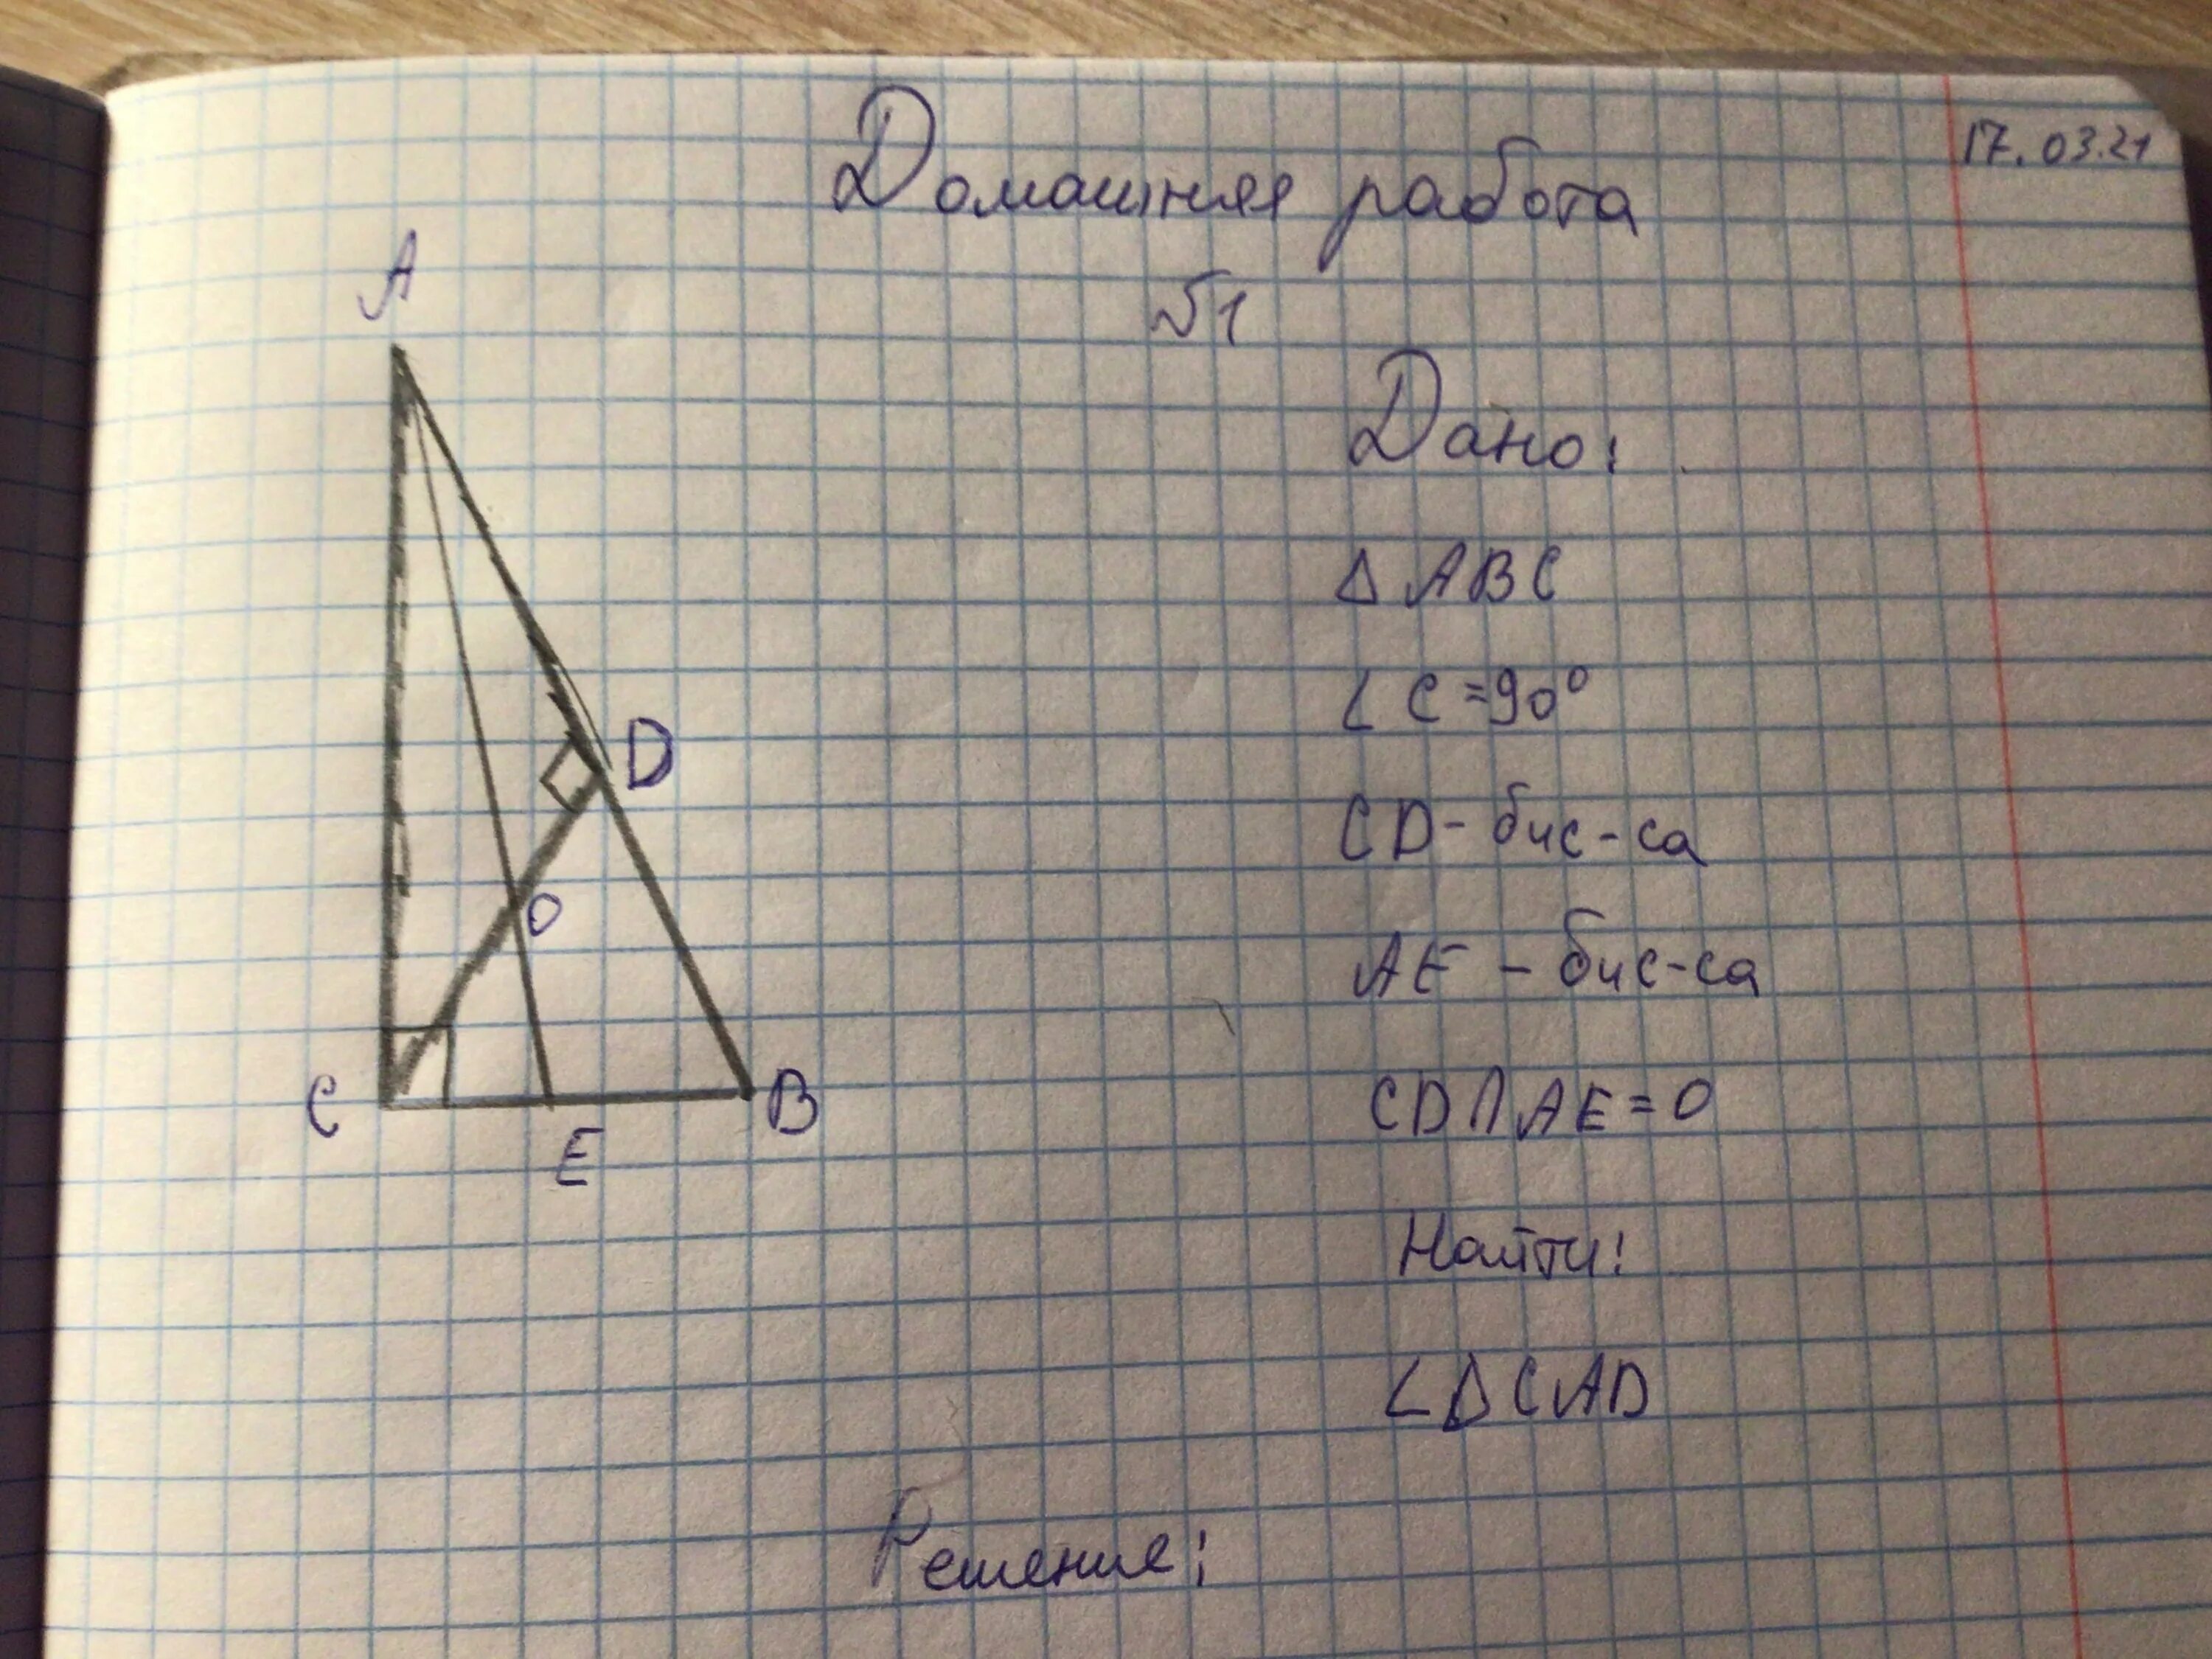 17.03.21
Домашняя работа
№1
A
Дано:
Δ ABC
∠ C =90°
D
CD- бис-са
O
AE - бис-са
C
B
CD∩AE=O
E
Найти:
∠ΔCAD
Решение: